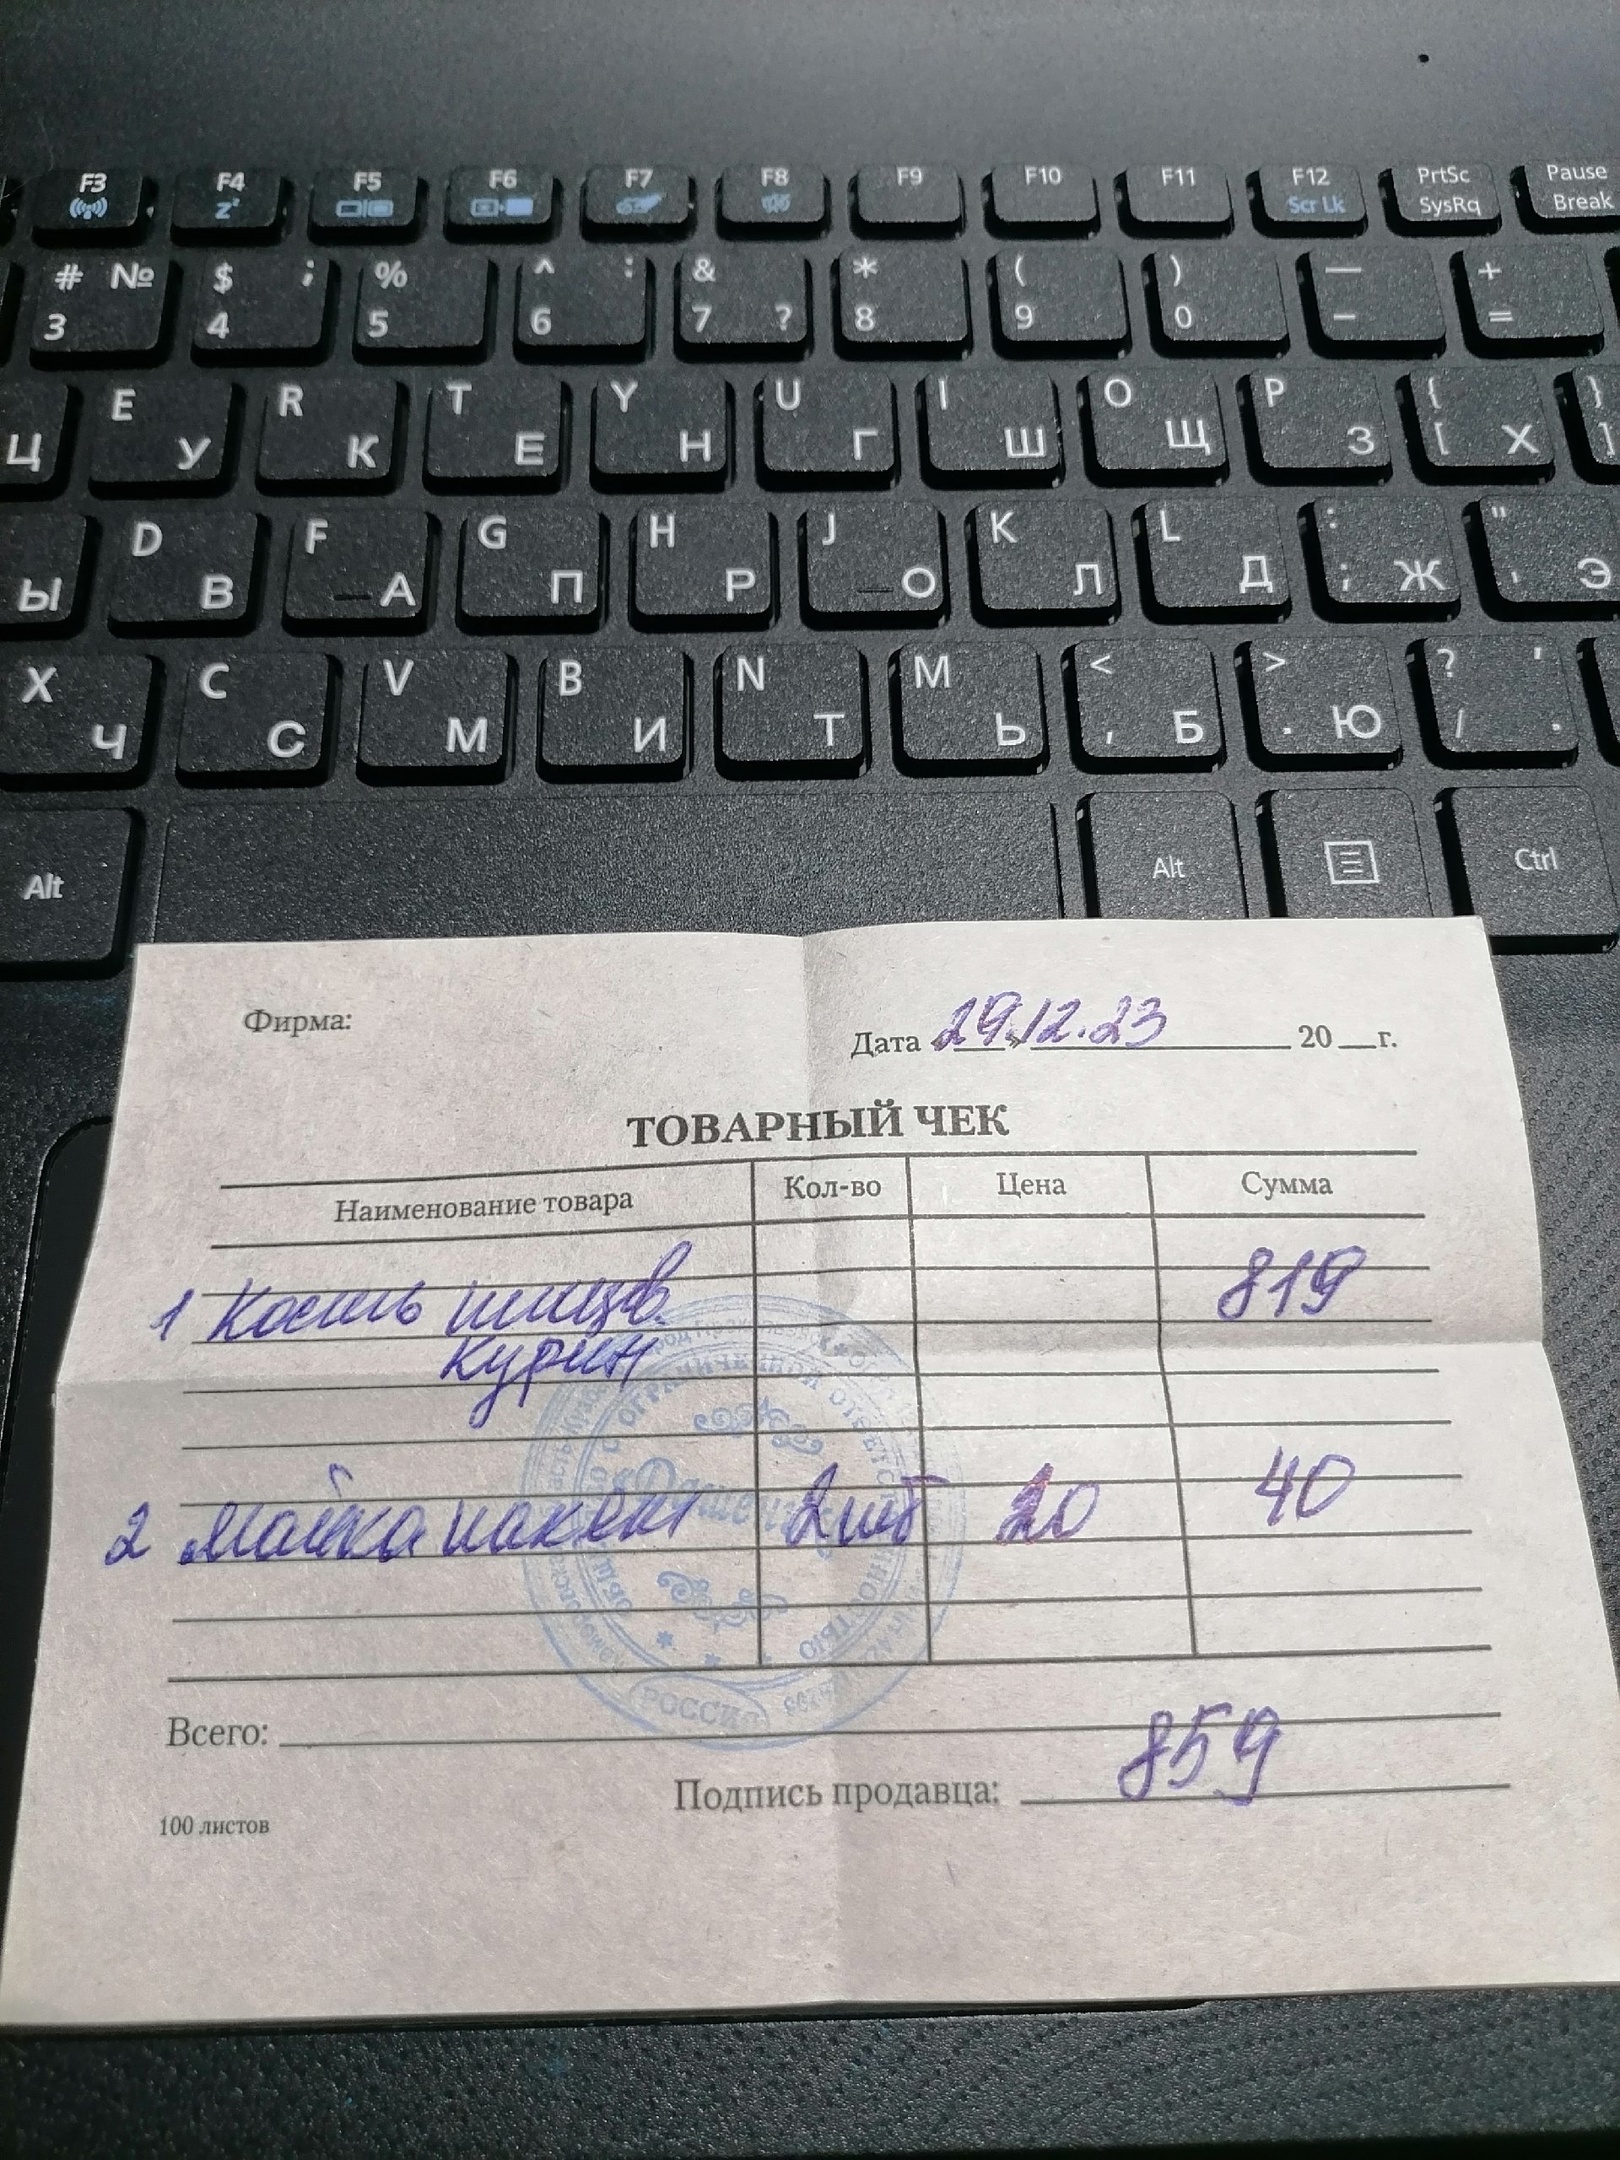 F3 F4 F5 F6 F7 F8 F9 F10 F11 F12 PrtSc Pause
z² Scr Lk SysRq Break
# № $ ; % ^ : & * ( ) — +
3 4 5 6 7 ? 8 9 0 - =
E R T Y U I O P { }
Ц У К Е Н Г Ш Щ З [ Х ]
D F G H J K L : "
Ы В А П Р О Л Д ; Ж ' Э
X C V B N M < > ? ,
Ч С М И Т Ь , Б . Ю / .
Alt Alt Ctrl
Фирма:
Дата « 29.12.23 20 г.
ТОВАРНЫЙ ЧЕК
Наименование товара Кол-во Цена Сумма
1 Кость птицев. 819
курин
2 Майка пакет 2 шт 20 40
РОССИЯ
Всего: 859
Подпись продавца:
100 листов